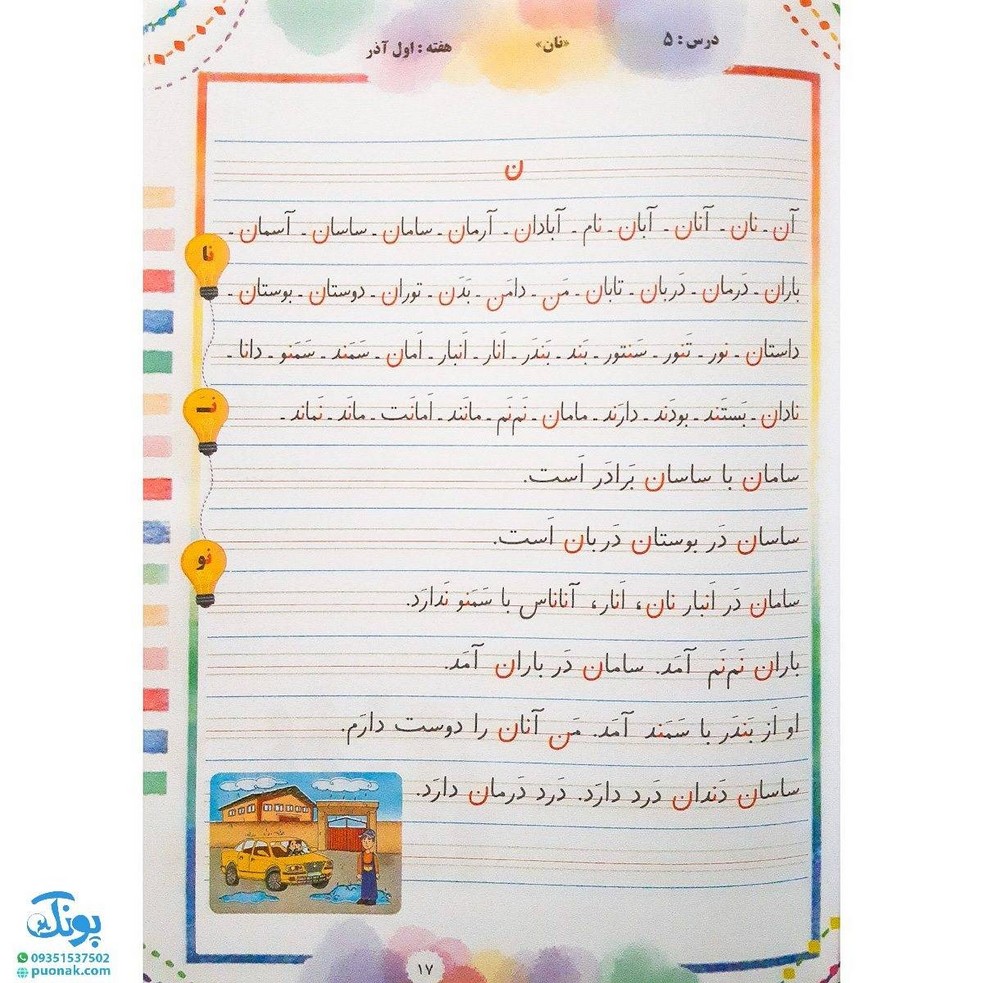 درس : ۵
«نان»
هفته : اول آذر
ن
آن ـ نان ـ آنان ـ آبان ـ نام ـ آبادان ـ آرمان ـ سامان ـ ساسان ـ آسمان ـ
نا
باران ـ دَرمان ـ دَربان ـ تابان ـ مَن ـ دامَن ـ بَدَن ـ توران ـ دوستان ـ بوستان ـ
داستان ـ نور ـ تَنور ـ سَنتور ـ بَند ـ بَندَر ـ اَنار ـ اَنبار ـ اَمان ـ سَمَند ـ سَمَنو ـ دانا ـ
نَـ
نادان ـ بَستَند ـ بودَند ـ دارَند ـ مامان ـ نَم‌نَم ـ مانَند ـ اَمانَت ـ مانَد ـ نَماند ـ
سامان با ساسان بَرادَر اَست.
ساسان دَر بوستان دَربان اَست.
نو
سامان دَر اَنبار نان، اَنار، آناناس با سَمَنو نَدارَد.
باران نَم‌نَم آمَد. سامان دَر باران آمَد.
او اَز بَندَر با سَمَند آمَد. مَن آنان را دوست دارَم.
ساسان دَندان دَرد دارَد. دَرد دَرمان دارَد.
۱۷
پونک
09351537502
puonak.com